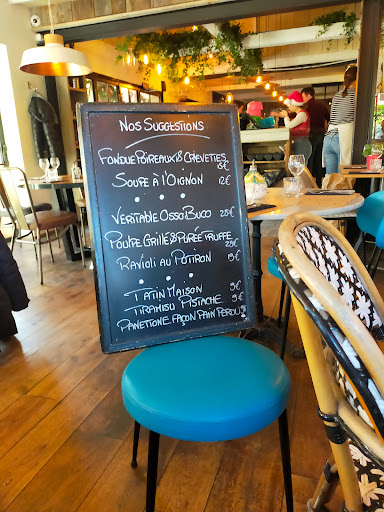 Nos Suggestions
Fondue Poireaux & Crevettes
Soupe à l'Oignon 12€
Veritable Osso Buco 25€
Poulpe Grillé & Purée Truffe
25€
Ravioli au Potiron 19€
Tatin Maison 9€
Tiramisu Pistache 9€
Panetone Façon Pain Perdu